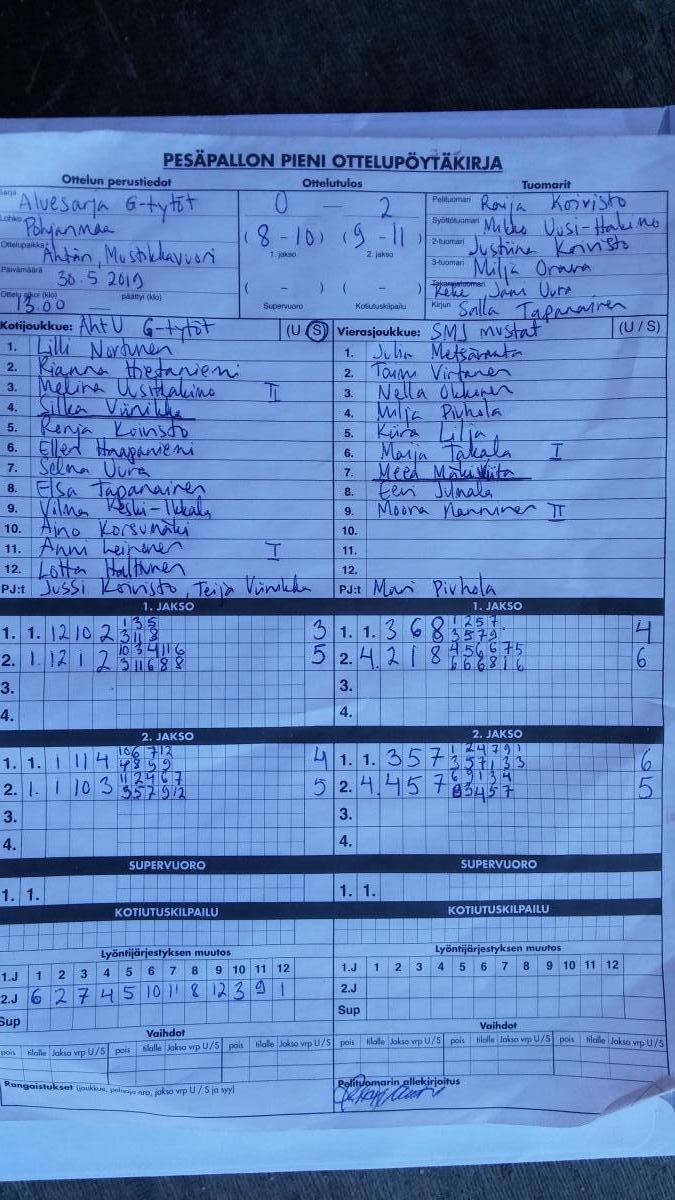 PESÄPALLON PIENI OTTELUPÖYTÄKIRJA
Ottelun perustiedot Ottelutulos Tuomarit
Sarja Aluesarja G-tytöt 0 — 2 Pelituomari Raija Koivisto
Lohko Pohjanmaa (8-10) (9-11) Syöttötuomari Mikko Uusi-Hakimo
1. jakso 2. jakso
Ottelupaikka Ähtäri, Mustikkavuori 2-tuomari Justiina Koivisto
Päivämäärä 30.5 2019 ( - ) ( - ) 3-tuomari Milja Orava
Takarajatuomari Jani Uura
Ottelu alkoi (klo) 13.00 päättyi (klo) Supervuoro Kotiutuskilpailu Kirjuri Salla Tapanainen
Kotijoukkue: ÄhtU G-tytöt (U / S) Vierasjoukkue: SMJ mustat (U / S)
1. Lilli Nortunen 1. Julia Metsäranta
2. Rianna Hietaniemi 2. Taimi Virtanen
3. Melina Uusihakimo II 3. Nella Okkonen
4. Silka Viinikka 4. Milja Pivhola
5. Ronja Koivisto 5. Kiira Lilja
6. Ellen Haapaniemi 6. Maija Takala I
7. Selma Uura 7. Meea
8. Elsa Tapanainen 8. Eevi Jumala
9. Vilma Keski-Ikkala 9. Moona Manninen II
10. Aino Korsumäki 10.
11. Anni Leinonen I 11.
12. Lotta Halttunen 12.
PJ:t Jussi Koivisto, Teija Viinikka PJ:t Mari Pivhola
1. JAKSO 1. JAKSO
1. 1. 12 10 2 1 3 5 3 1. 1. 3 6 8 1 2 5 7 4
3 11 8 3 5 7 9
2. 1. 12 1 2 10 3 4 11 6 5 2. 4. 2 1 8 4 5 6 6 7 5 6
3 11 6 8 8 6 6 6 8 1 6
3. 3.
4. 4.
2. JAKSO 2. JAKSO
1. 1. 1 11 4 10 6 7 12 4 1. 1. 3 5 7 1 2 4 7 9 1 6
4 8 9 9 3 5 7 1 3 3
2. 1. 1 10 3 11 2 4 6 7 5 2. 4. 4 5 7 6 9 1 3 4 5
3 5 7 9 12 3 4 5 7
3. 3.
4. 4.
SUPERVUORO SUPERVUORO
1. 1. 1. 1.
KOTIUTUSKILPAILU KOTIUTUSKILPAILU
Lyöntijärjestyksen muutos Lyöntijärjestyksen muutos
1.J 1 2 3 4 5 6 7 8 9 10 11 12 1.J 1 2 3 4 5 6 7 8 9 10 11 12
2.J 6 2 7 4 5 10 11 8 12 3 9 1 2.J
Sup Sup
Vaihdot Vaihdot
pois tilalle Jakso vrp U/S pois tilalle Jakso vrp U/S pois tilalle Jakso vrp U/S pois tilalle Jakso vrp U/S pois tilalle Jakso vrp U/S pois tilalle Jakso vrp U/S
Rangaistukset (joukkue, pelaaja nro, jakso vrp U / S ja syy) Pelituomarin allekirjoitus